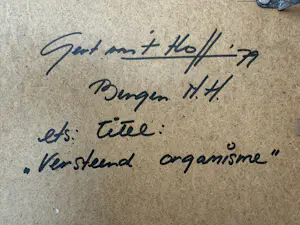 Gert van 't Hoff '79
Bergen N.H.
ets: titel:
„Versteend organisme"